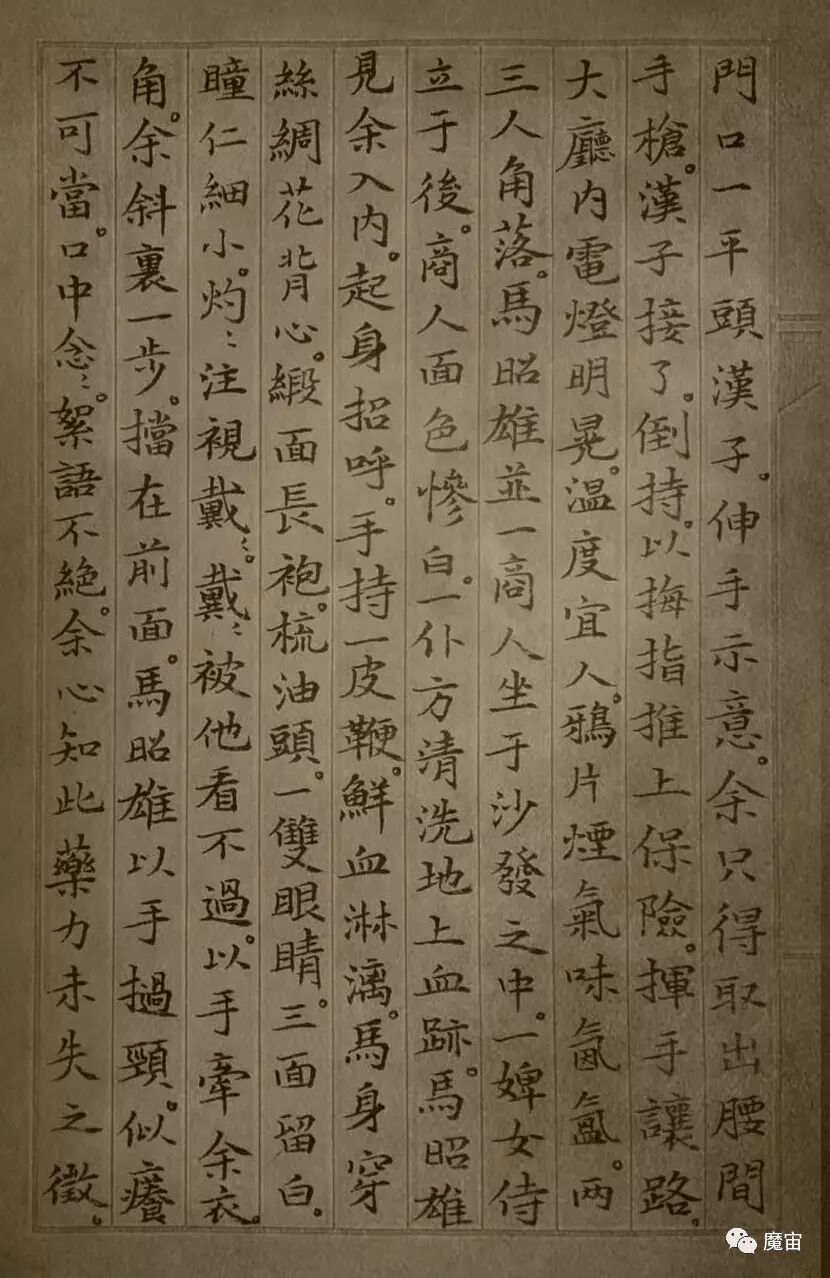 門口一平頭漢子。伸手示意。余只得取出腰間
手槍。漢子接了。倒持。以拇指推上保險。揮手讓路。
大廳内電燈明晃。温度宜人。鴉片煙氣味氤氲。兩
三人角落。馬昭雄並一商人坐于沙發之中。一婢女侍
立于後。商人面色慘白。一仆方清洗地上血跡。馬昭雄
見余入内。起身招呼。手持一皮鞭。鮮血淋漓。馬身穿
絲綢花背心。緞面長袍。梳油頭。一雙眼睛。三面留白。
瞳仁細小。灼〻注視戴〻。戴〻被他看不過。以手牽余衣
角。余斜裏一步。擋在前面。馬昭雄以手撾頸。似癢
不可當。口中念〻。絮語不絶。余心知此藥力未失之徵。
魔宙